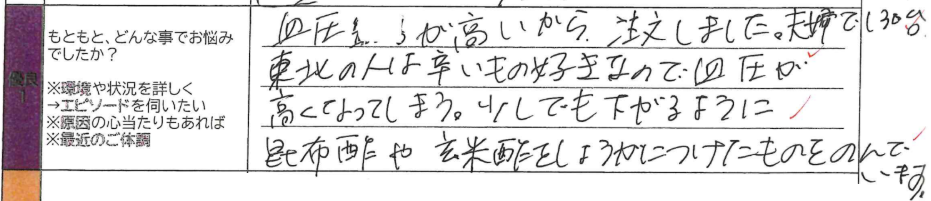 もともと、どんな事でお悩み
でしたか？
※環境や状況を詳しく
→エピソードを伺いたい
※原因の心当たりもあれば
※最近のご体調
優良
血圧 が高いから 注文しました。夫婦で
東北の人は辛いもの好きなので血圧が
高くなってしまう。少しでも下がるように
昆布酢や 玄米酢をしょうがにつけたものをのんで
います。